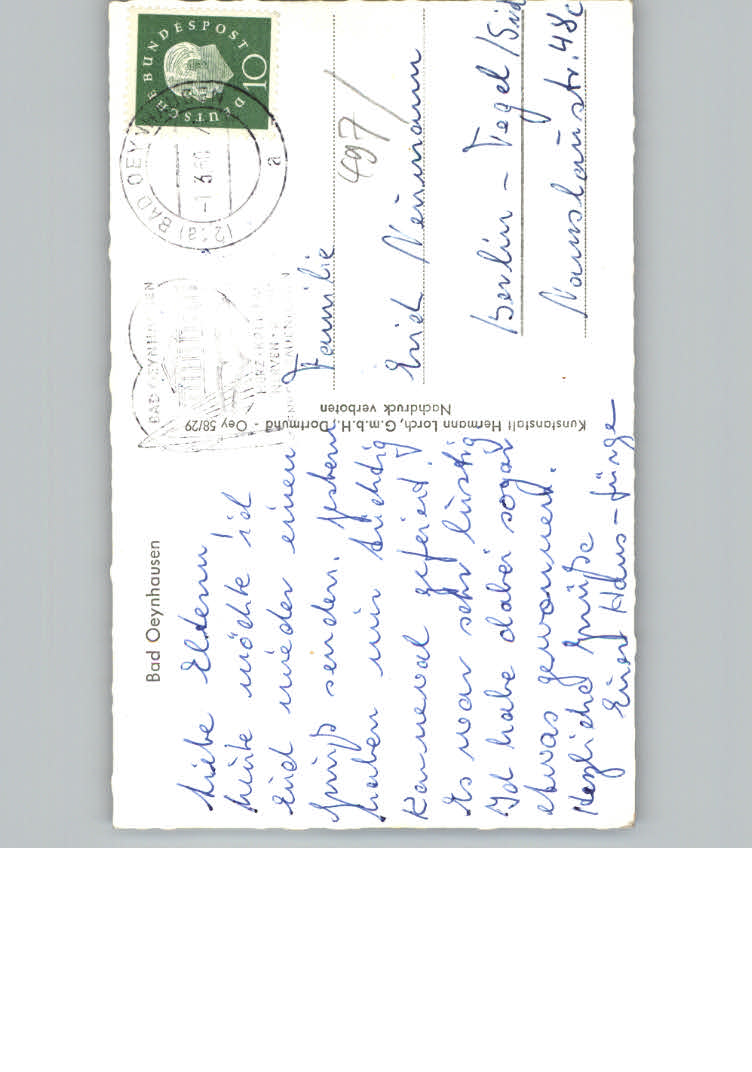 Bad Oeynhausen
Liebe Eltern
heute möchte ich
Euch wieder einen
Gruß senden. Gestern
haben wir tüchtig
Karneval gefeiert.
Es war sehr lustig
Ich habe dabei sogar
etwas gewonnen.
Herzliche Grüße
Euer Hans-Jürge
Kunstanstalt Hermann Lorch, G.m.b.H., Dortmund - Oey 58/29
Nachdruck verboten
DEUTSCHE BUNDESPOST
10
(21a) BAD OEYNHAUSEN
-1.3.60
a
BAD OEYNHAUSEN
HERZ
NERVEN
497/
Familie
Erich Neumann
Berlin - Tegel/Süd
Namslaustr. 48c